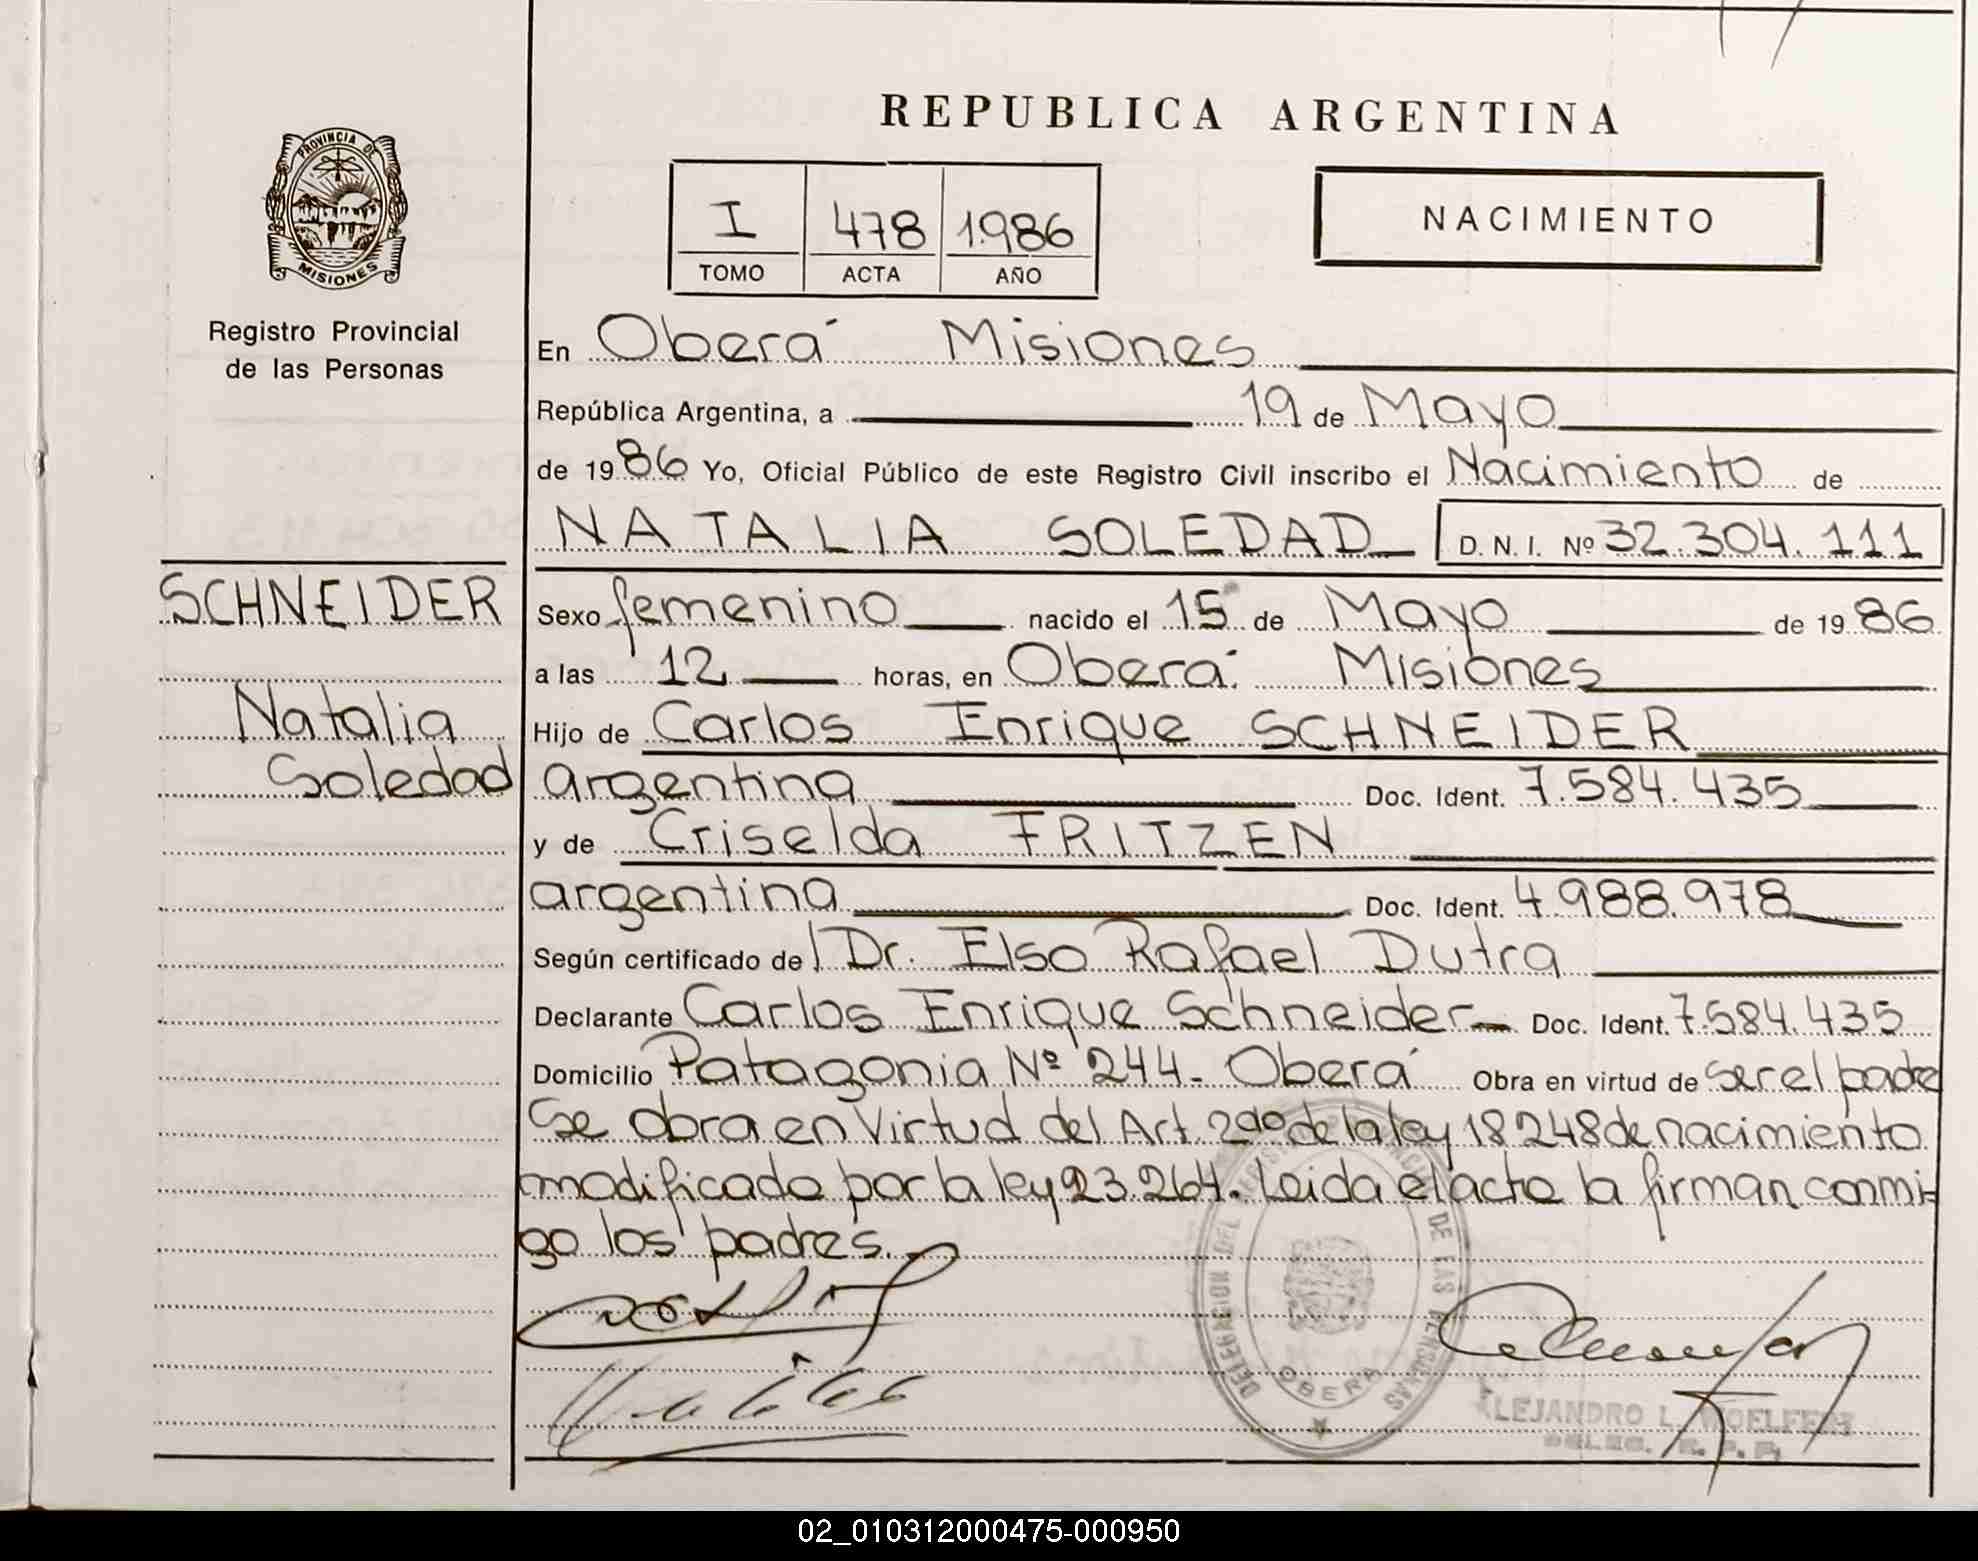 REPUBLICA ARGENTINA
PROVINCIA DE
MISIONES
Registro Provincial
de las Personas
I 478 1.986
TOMO ACTA AÑO
NACIMIENTO
En Oberá Misiones
República Argentina, a 19 de Mayo
de 19 86 Yo, Oficial Público de este Registro Civil inscribo el Nacimiento de
NATALIA SOLEDAD D.N.I. Nº 32.304.111
SCHNEIDER
Natalia
Soledad
Sexo femenino nacido el 15 de Mayo de 19 86
a las 12 horas, en Oberá. Misiones
Hijo de Carlos Enrique SCHNEIDER
argentina Doc. Ident. 7.584.435
y de Criselda FRITZEN
argentina Doc. Ident. 4.988.978
Según certificado de Dr. Elso Rafael Dutra
Declarante Carlos Enrique Schneider Doc. Ident. 7.584.435
Domicilio Patagonia Nº 244 - Oberá Obra en virtud de ser el padre
Se obra en Virtud del Art. 2do de la ley 18248 de nacimiento
modificado por la ley 23.264. Leida el acta la firman conmi-
go los padres.
DELEGACION DEL REGISTRO DE LAS PERSONAS
OBERA
ALEJANDRO L. WOELFERT
DELEG. R. P. P.
02_010312000475-000950